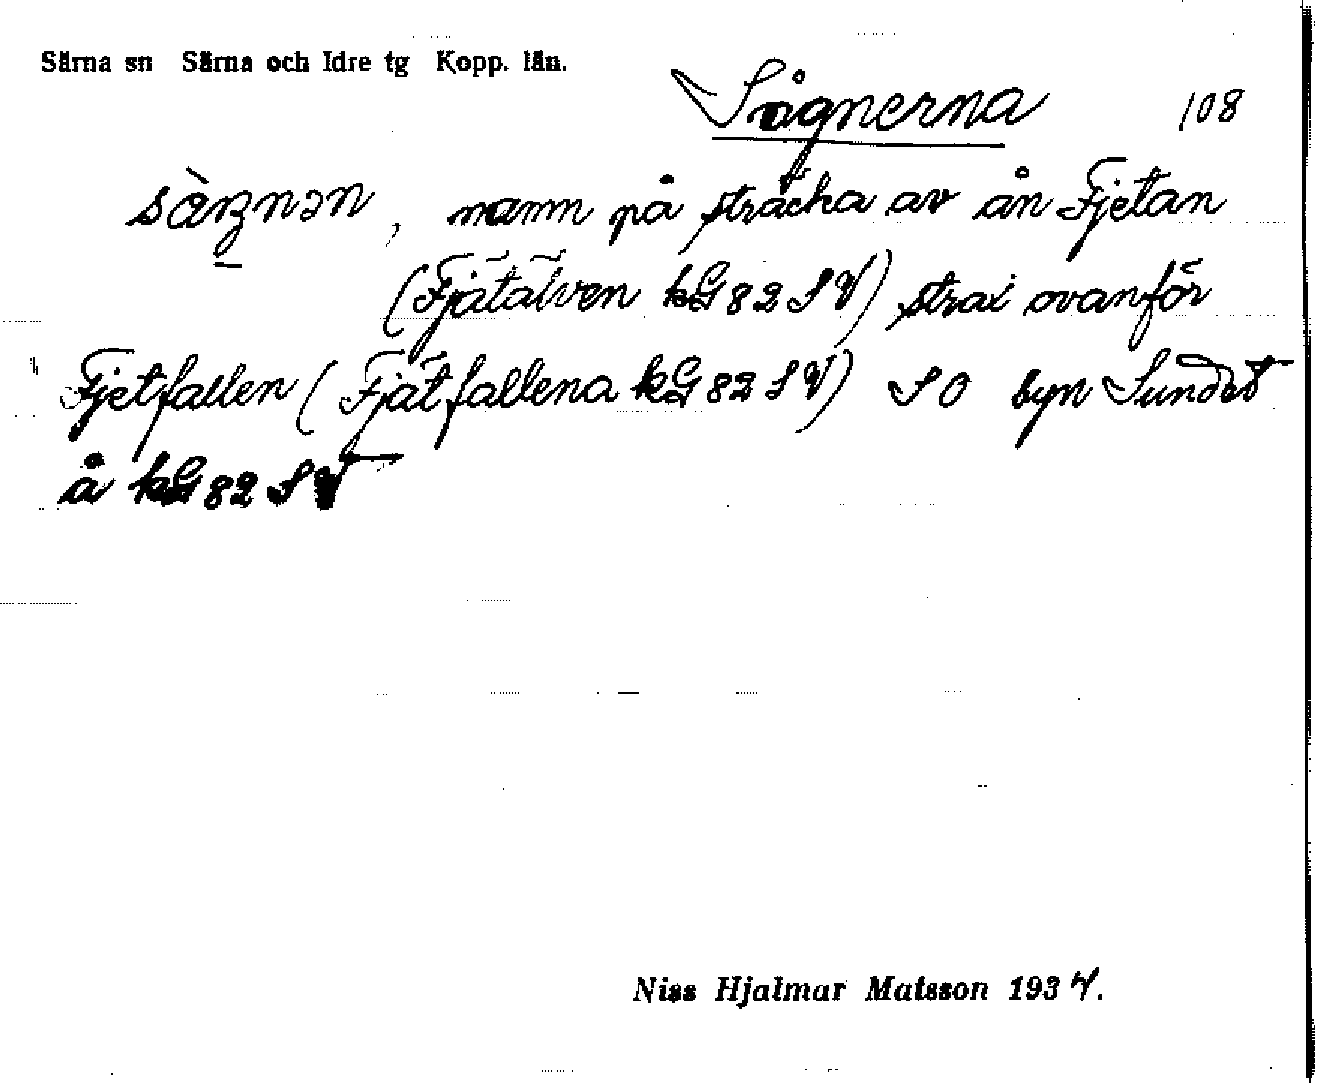 Särna sn Särna och Idre tg Kopp. län.
Sågnerna 108
sàꞬnən, namn på sträcka av ån Fjetan
(Fjätälven kG 82 SV) strax ovanför
Fjetfallen (Fjätfallena kG 82 SV) SO byn Sundet
å kG 82 SV
Niss Hjalmar Matsson 1934.